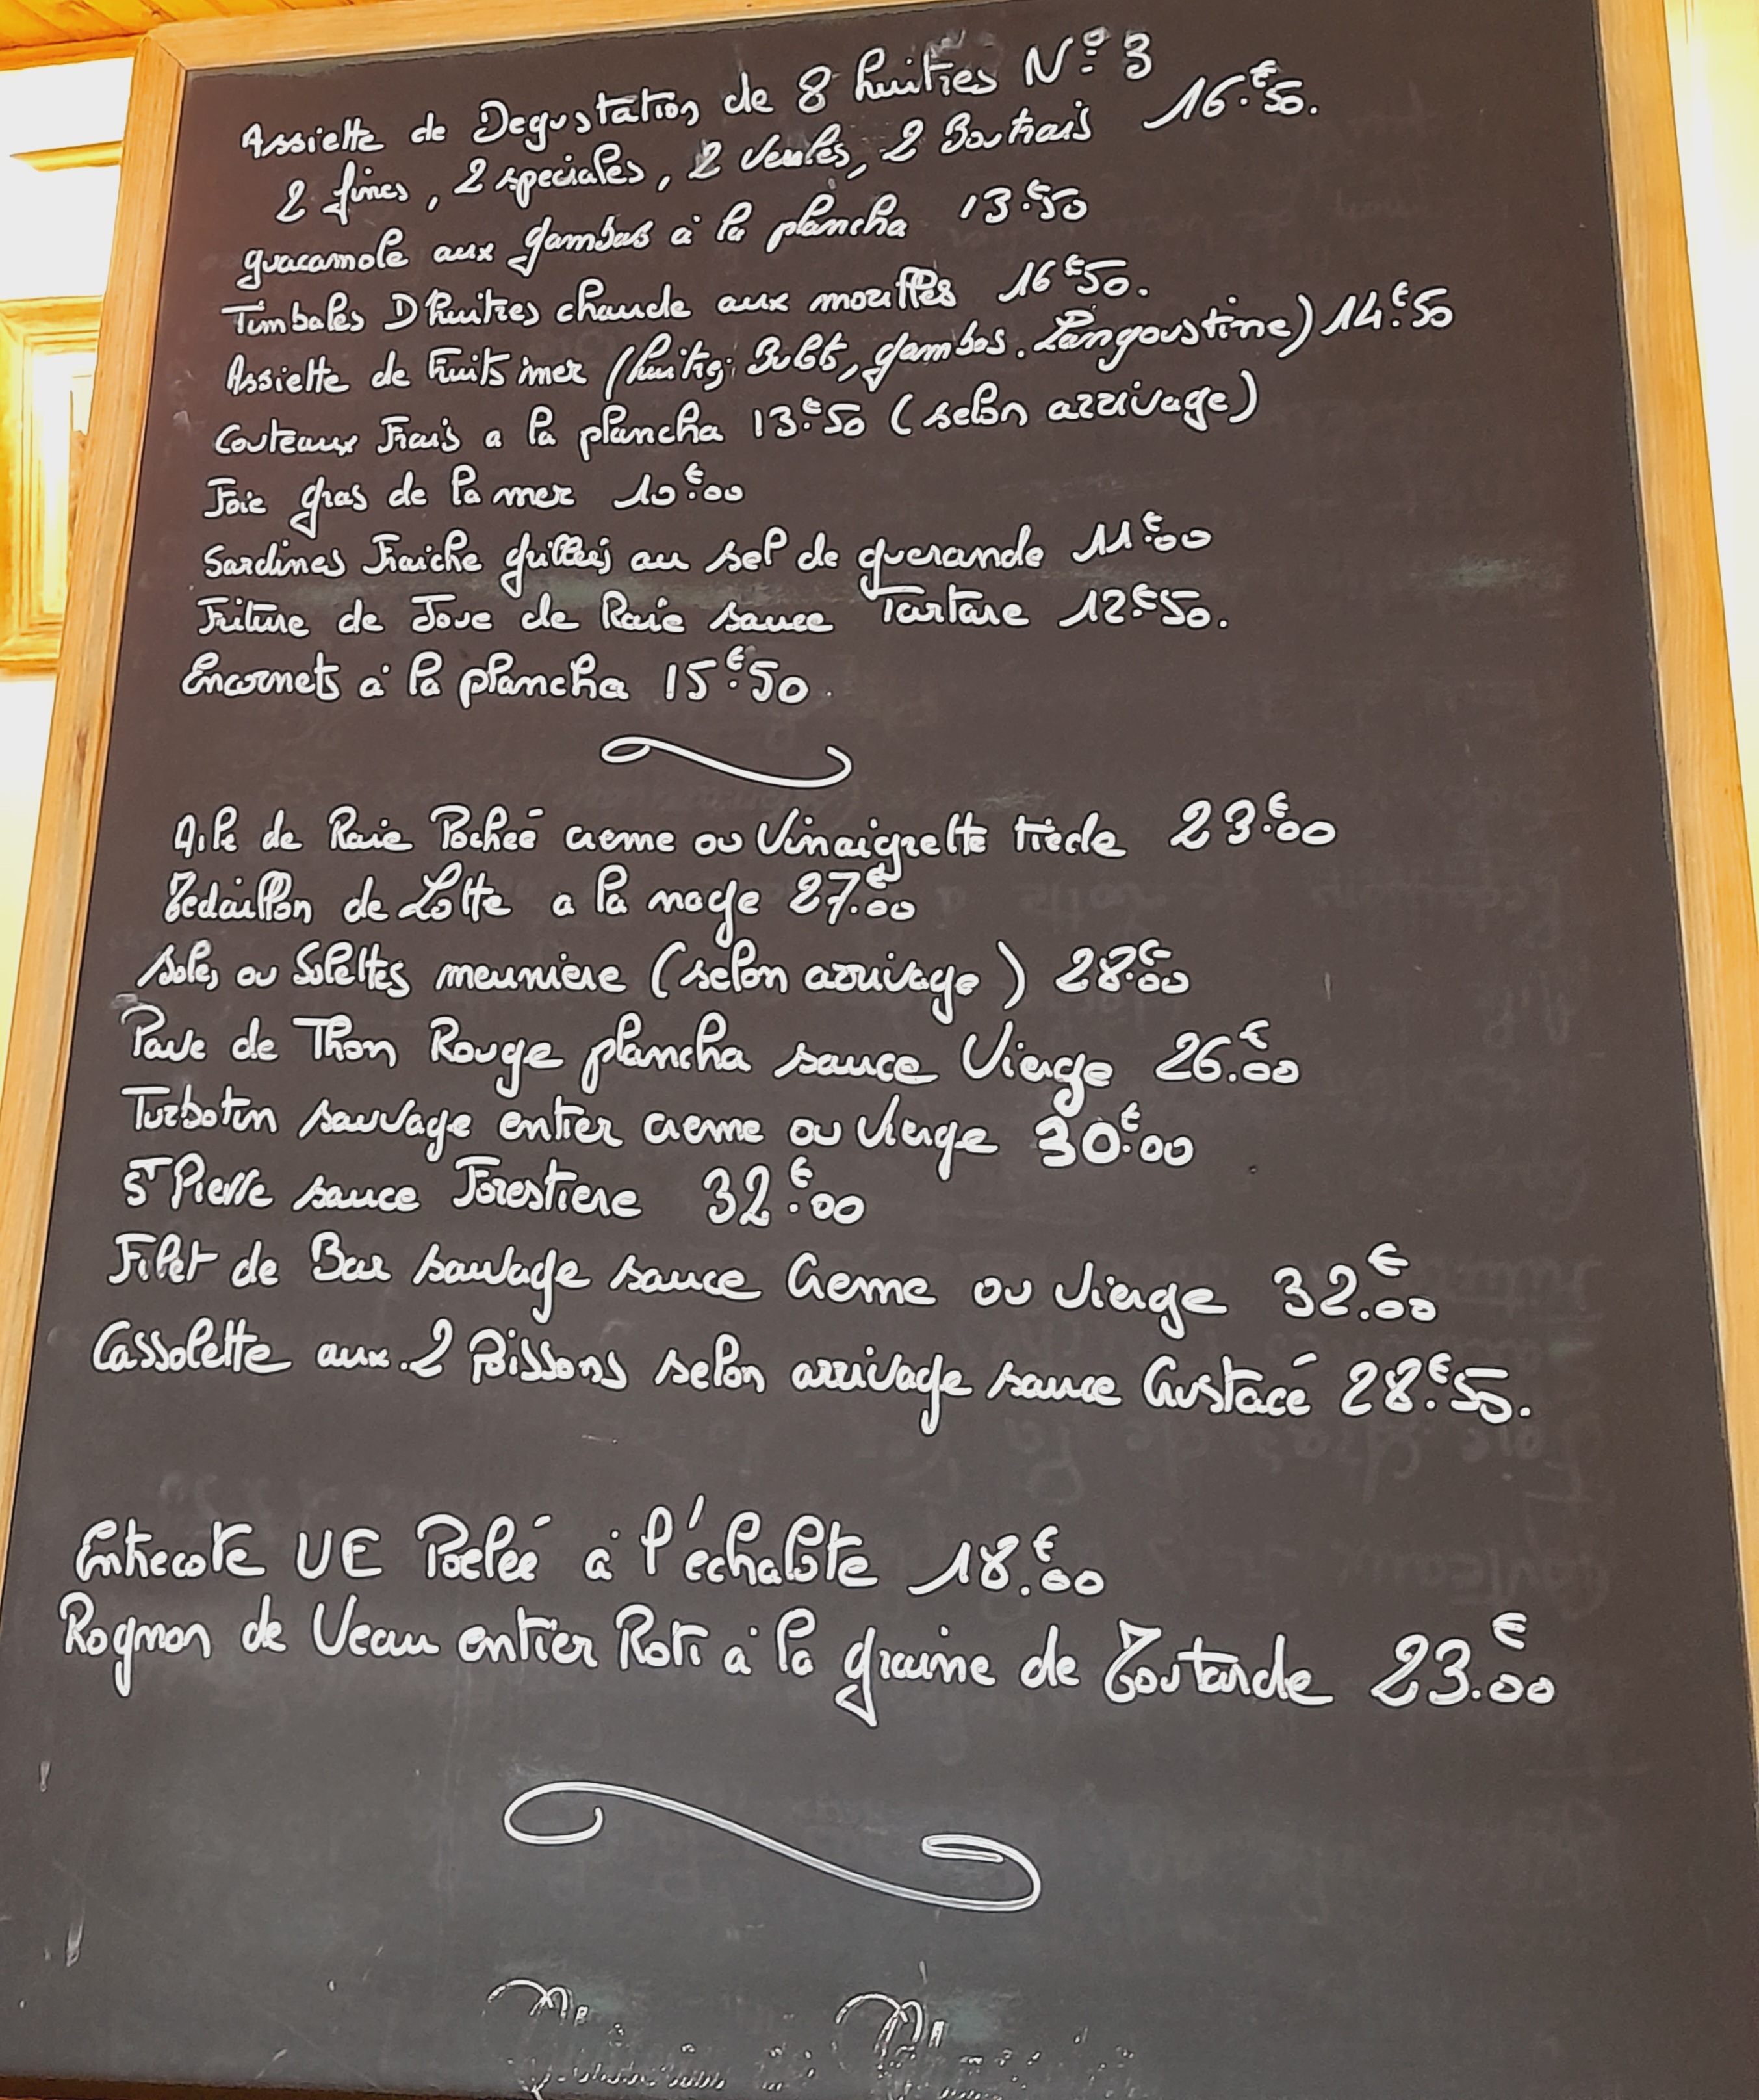 Assiette de Degustation de 8 huitres N° 3
2 fines, 2 speciales, 2 Veules, 2 Boutrais 16.€50.
guacamole aux gambas à la plancha 13.€50
Timbales D huitres chaude aux morilles 16€50.
Assiette de Fruits mer (huitres; Bulot, gambas. Langoustine) 14.€50
Couteaux Frais a la plancha 13.€50 (selon arrivage)
Foie gras de la mer 10.€00
Sardines Fraiche grillées au sel de guerande 11.€00
Friture de Joue de Raie sauce Tartare 12.€50.
Encornets à la plancha 15.€50.
Aile de Raie Pocheé creme ou Vinaigrette tiede 23.€00
Medaillon de Lotte a la nage 27.€00
soles ou Solettes meuniere (selon arrivage) 28.€00
Pave de Thon Rouge plancha sauce Vierge 26.€00
Turbotin sauvage entier creme ou Vierge 30.€00
St Pierre sauce Forestiere 32.€00
Filet de Bar sauvage sauce Creme ou Vierge 32.€00
Cassolette aux.2 Poissons selon arrivage sauce Crustacé 28.€55.
Entrecote UE Poeleé à l'échalote 18.€00
Rognon de Veau entier Roti à la graine de Moutarde 23.€00